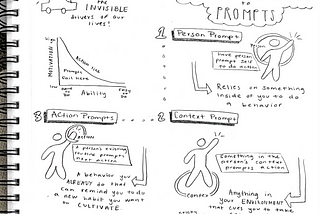 the INVISIBLE
drivers of our
lives!
to
PROMPTS
High
MOTIVATION
Low
Action Line
Prompts
Fail Here
Hard
to do
Ability
Easy
to do
1 Person Prompt
Person
Have person
prompt self
to do action
Relies on something
inside of you to do
a behavior
3 Action Prompts
action
A person's existing
routine prompts
near action
A behavior you
ALREADY do that
can remind you to do
a new habit you
want to CULTIVATE.
2 Context Prompt
Something in the
person's context
prompts action
Context
Anything in
your ENVIRONMENT
that cues you to take